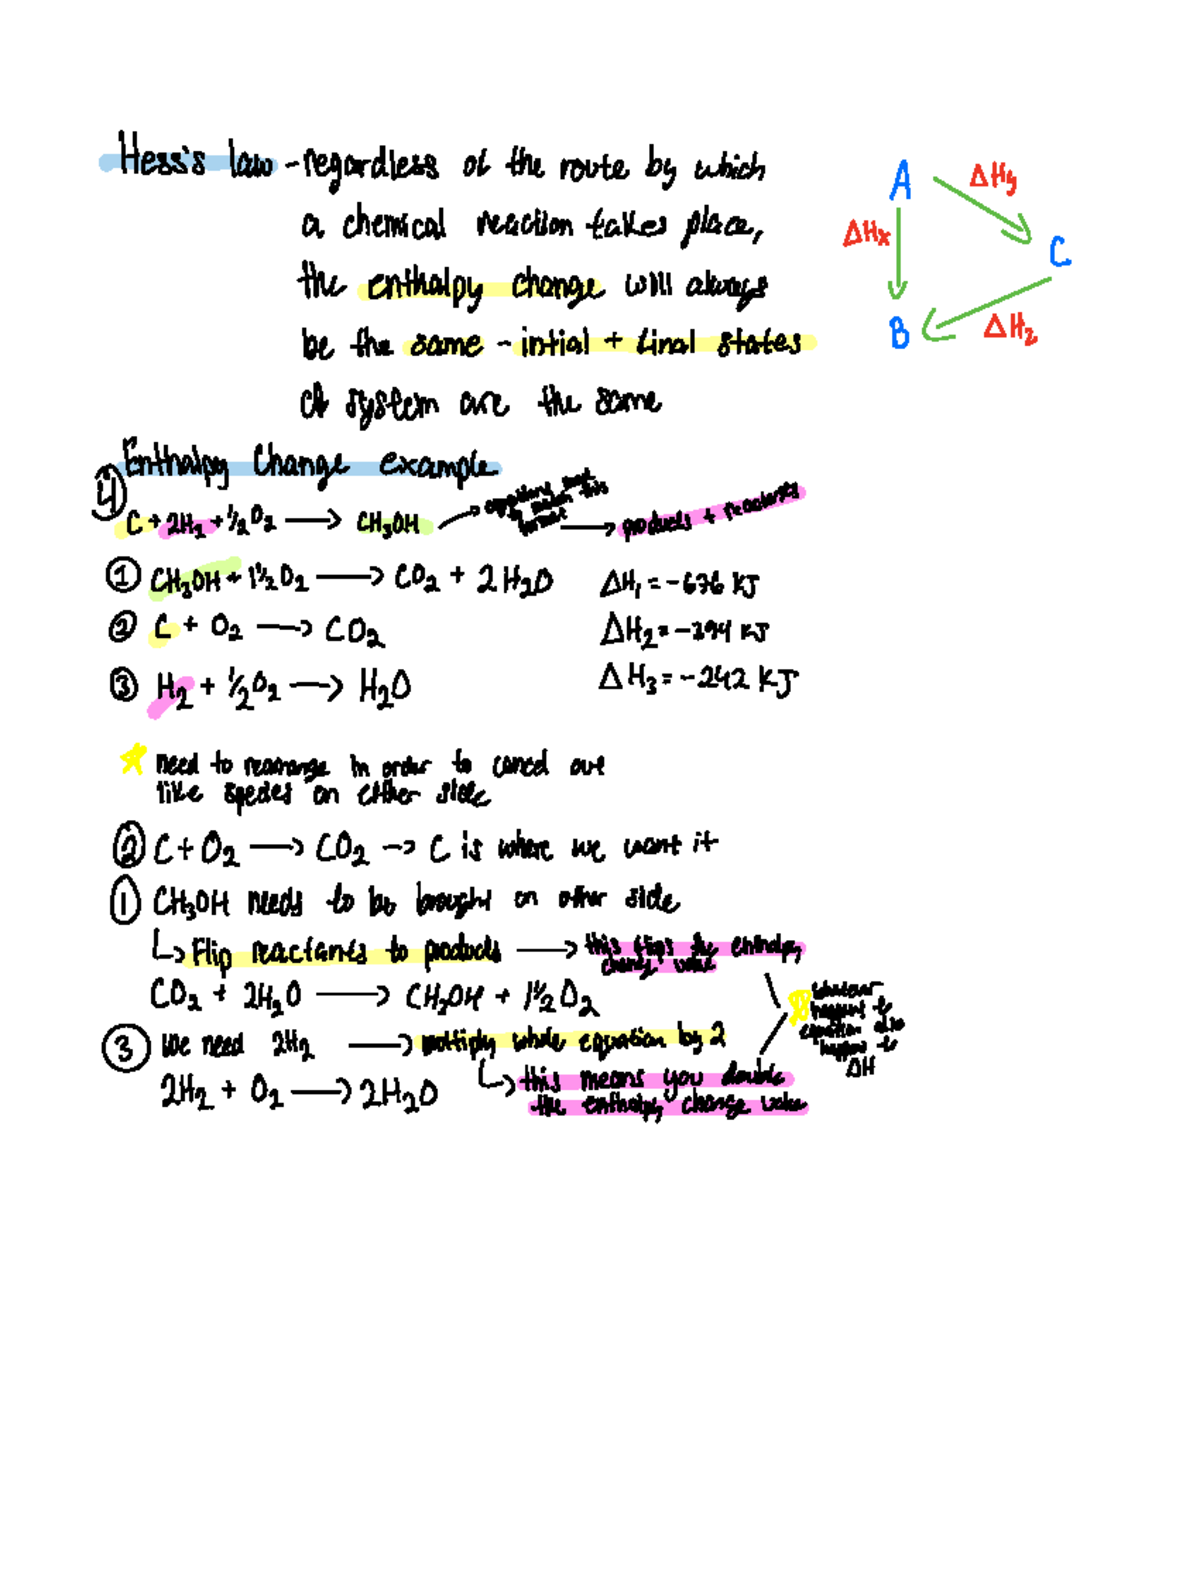 Hess's law - regardless of the route by which
a chemical reaction takes place,
the enthalpy change will always
be the same - intial + final states
of system are the same
A
ΔHy
ΔHx
C
B
ΔHz
Enthalpy Change example
④
C + 2H₂ + ½O₂ → CH₃OH → equations need to match this format → products + reactants
① CH₃OH + 1½O₂ → CO₂ + 2H₂O ΔH₁ = -676 KJ
② C + O₂ → CO₂ ΔH₂ = -394 KJ
③ H₂ + ½O₂ → H₂O ΔH₃ = -242 KJ
need to rearrange in order to cancel out
like species on either side
② C + O₂ → CO₂ → C is where we want it
① CH₃OH needs to be brought on other side
↳ Flip reactants to products → this flips the enthalpy
change value
CO₂ + 2H₂O → CH₃OH + 1½O₂
whatever
happens to
equation also
happens to
ΔH
③ We need 2H₂ → multiply whole equation by 2
2H₂ + O₂ → 2H₂O ↳ this means you double
the enthalpy change value